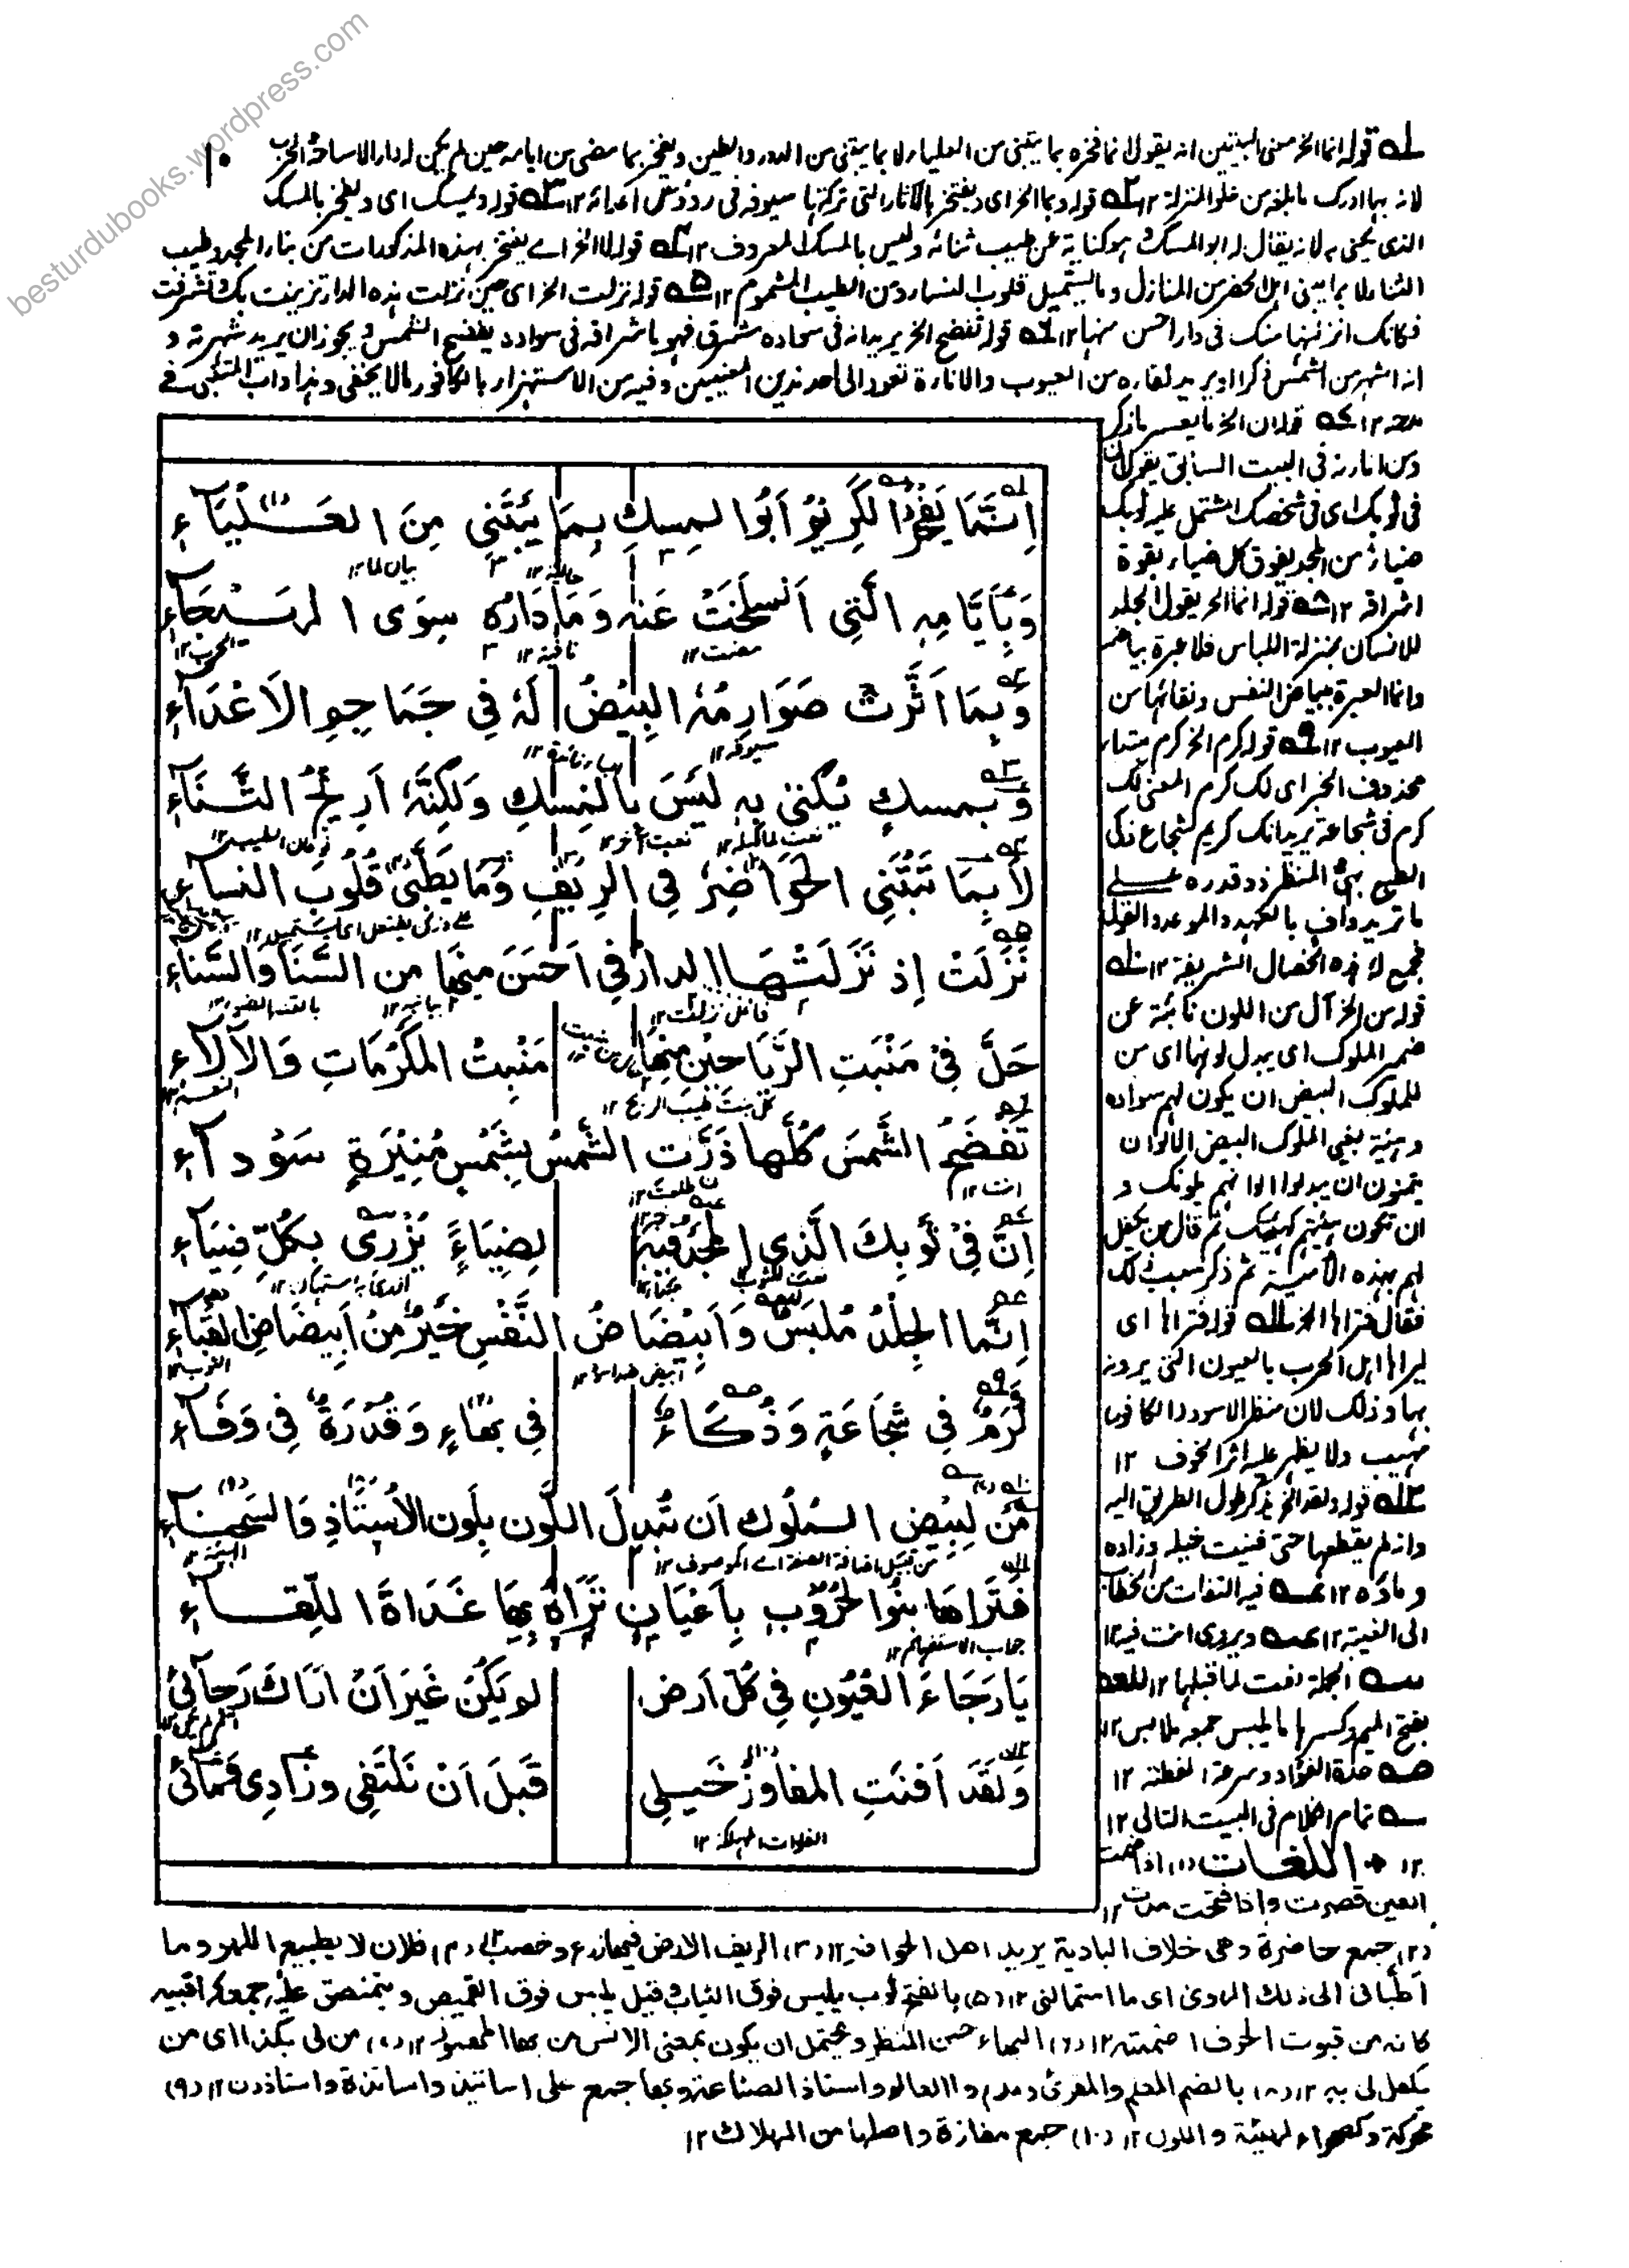 besturdubooks.wordpress.com
١٠
له قوله انما الخ معنى البيتين انه يقول انما فخره بما يبتنى من العلياء لا بما يبتنى من المدر والطين ويفخر بما مضى من ايامه حين لم يكن له دار الا ساحة الحرب
لانه بها ادرك ما بلغه من علو المنزلة ١٢ ٢ه قوله وبما الخ اى ويفتخر بالآثار التى تركتها سيوفه فى رؤوس اعدائه ١٢ ٣ه قوله وبمسك اى ويفخر بالمسك
الذى يكنى به لانه يقال له ابو المسك وهو كناية عن طيب ثنائه وليس بالمسك المعروف ١٢ ٤ه قوله لا الخ اے يفتخر بهذه المذكورات من بناء المجد وطيب
الثناء لا بما يبنى اهل الحضر من المنازل وما يستميل قلوب النساء من الطيب المشموم ١٢ ٥ه قوله نزلت الخ اى حين نزلت هذه الدار تزينت بك وتشرفت
فكانك انزلتها منك فى دار احسن منها ١٢ ٦ه قوله تفضح الخ يريد انه فى سواده مشرق فهو باشراقه فى سواده يفضح الشمس ويجوز ان يريد شهرته و
انه اشهر من الشمس ذكرا او يريد نقاءه من العيوب والانارة تعود الى احد هذين المعنيين وفيه من الاستهزاء بالكافور مالا يخفى وهذا داب المتنبى فے
مدحه ١٢ ٧ه قوله ان الخ هذا يفسر ما ذكر
من انارته فى البيت السابق يقول ان
فى ثوبك اى فى شخصك المشتمل عليه ثوبك
ضياء من المجد يفوق كل ضياء بقوة
اشراقه ١٢ ٨ه قوله انما الخ يقول الجلد
للانسان بمنزلة اللباس فلا عبرة ببياضه
وانما العبرة ببياض النفس ونقائها من
العيوب ١٢ ٩ه قوله كرم الخ كرم مبتداء
محذوف الخبر اى لك كرم المعنى لك
كرم فى شجاعة يريد انك كريم شجاع ذكى
الطبع بهى المنظر ذو قدرة علے
ما تريد واف بالعهد والموعد والقول
فجمع له هذه الخصال الشريفة ١٢ ١٠ه
قوله من الخ آل من اللون نائبة عن
ضمير الملوك اى يبدل لونها اى من
للملوك البيض ان يكون لهم سواده
وهيئة يعنى الملوك البيض الالوان
يتمنون ان يبدلوا الوانهم بلونك و
ان تكون هيئتهم كهيئتك ثم قال من يكفل
لهم بهذه الامنية ثم ذكر سبب ذلك
فقال فتراها الخ ١١ه قوله فتراها اى
ليراها اهل الحرب بالعيون التى يرونه
بها وذلك لان منظر الاسود الكافور
مهيب ولا يظهر عليه اثر الخوف ١٢
١٢ه قوله ولقد الخ يذكر طول الطريق اليه
وانه لم يقطعها حتى فنيت خيله وزاده
وماؤه ١٢ عه فيه التفات من الخطاب
الى الغيبة ١٢ عه ويروى انت فيه ١٢
سه الجملة نعت لما قبلها ١٢ للعه
بفتح الميم وكسرها ما يلبس جمعه ملابس ١٢
صه حدة الفؤاد وسرعة الفطنة ١٢
سه تمام الكلام فى البيت التالى ١٢
١٢ اللغات (١) اذا ضمت
العين قصرت واذا فتحت مدت ١٢
اِنَّمَا يَفْخَرُ الكَرِيْمُ اَبُو المِسكِ بِمَا يَبْتَنِي مِنَ العَلْيَآءِ
بيان لما ١٢ حالية ١٢
وَبِاَيَّامِهِ الَّتِي اَنسَلَخَتْ عَنهُ وَمَا دَارُهٗ سِوَى الهَيْجَآءِ
مضت ١٢ نافية ١٢ الحرب ١٢
وَبِمَا اَثَّرَتْ صَوَارِمُهُ البِيْضُ لَهٗ فِي جَمَاجِمِ الاَعْدَآءِ
سيوفه ١٢
وَبِمِسكٍ يُكْنٰى بِهٖ لَيْسَ بِالمِسكِ وَلٰكِنَّهٗ اَرِيْجُ الثَّنَآءِ
نعت لما قبله ١٢ نعت آخر ١٢ فوحان الطيب ١٢
لَا بِمَا تَبْتَنِي الحَوَاضِرُ فِي الرِيْفِ وَمَا يَطَّبِيْ قُلُوبَ النسآءِ
على وزن يفتعل اى ما يستميل ١٢
نَزَلَتْ اِذ نَزَلتَهَا الدارُ فِي اَحسَنَ مِنهَا من السَّنَا وَالسَّنَآءِ
فاعل نزلت ١٢ بيانية ١٢ بالقصر الضوء ١٢
حَلَّ فِيْ مَنْبَتِ الرَّيَاحِيْنِ مِنهَا مَنْبِتُ المَكْرُمَاتِ وَالآلَآءِ
كل نبت طيب الريح ١٢ النعم ١٢
تَفْضَحُ الشَّمسَ كُلَّمَا ذَرَّتِ الشَّمْسُ بِشَمْسٍ مُنِيْرَةٍ سَوْدآءِ
انت ١٢ طلعت ١٢
اِنَّ فِيْ ثَوْبِكَ الَّذِي المَجْدُ فِيْهِ لَضِيَآءً يُزْرِى بِكُلِّ ضِيَآءِ
نعت للثوب ١٢ ازرى به استهان ١٢
اِنَّمَا الجِلْدُ مُلْبَسٌ وَابْيِضَاضُ النَّفْسِ خَيْرٌ مِنْ ابْيِضَاضِ القَبَآءِ
ابيض ضد اسود ١٢ الثوب ١٢
كَرَمٌ فِي شَجَاعَةٍ وَذُكَآءٌ فِي بَهَآءٍ وَقُدْرَةٌ فِي وَفَآءِ
مَن لِبِيْضِ المُلُوك اَن تُبْدِلَ اللَّون بِلَون الاُسْتَاذِ وَالسَّحْنَآءِ
من قبيل اضافة الصفة اے الموصوف ١٢ الهيئة ١٢
فَتَرَاهَا بَنُوا الحُرُوْبِ بِاَعْيَانٍ تَرَاهُ بِهَا غَدَاةَ اللِّقَآءِ
جواب الاستفهام ١٢
يَا رَجَآءَ العُيُونِ فِي كُلِّ اَرض لَم يَكُنْ غَيْرَ اَنْ اَرَاكَ رَجَآئِيْ
وَلَقَد اَفنَتِ المفاوزُ خَيلِي قَبلَ اَنْ نَلْتَقِي وزَادِى وَمَآئِيْ
الفلوات المهلكة ١٢
(٢) جمع حاضرة وهى خلاف البادية يريد اهل الحواضر ١٢ (٣) الريف الارض فيها زرع وخصب ١٢ (٤) فلان لا يطبيه اللهو وما
اطبانى الى ذلك الهوى اى ما استمالنى ١٢ (٥) بالفتح ثوب يلبس فوق الثياب وقيل يلبس فوق القميص ويتمنطق عليه جمعه اقبية
كانه من قبوت الحرف اذا ضممته ١٢ (٦) البهاء حسن المنظر ويحتمل ان يكون بمعنى الانس من بهأ المهموز ١٢ (٧) من لى بكذا اى من
يكفل لى به ١٢ (٨) بالضم المعلم والمقرئ والعالم واستاذ الصناعة ويجمع على اساتيذ واساتذة واستاذون ١٢ (٩)
محركة وكصحراء الهيئة واللون ١٢ (١٠) جمع مفازة واصلها من الهلاك ١٢